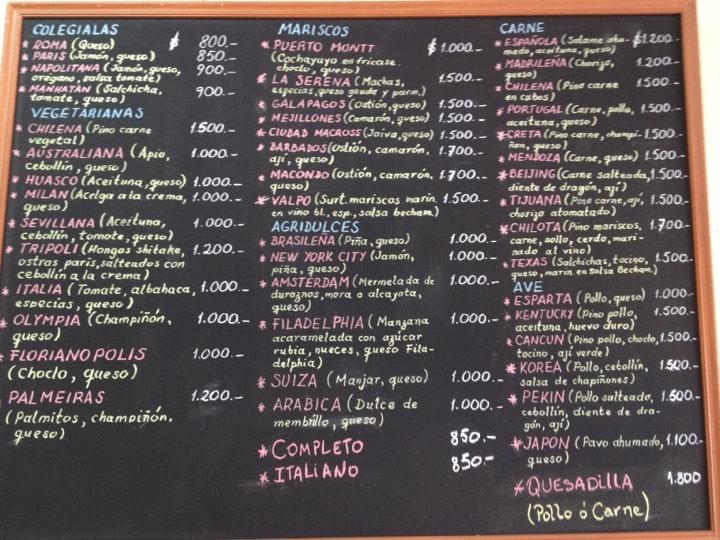 COLEGIALAS
* ROMA (Queso) $ 800.-
* PARIS (Jamón, queso) 850.-
* NAPOLITANA (Jamón, queso, 900.-
orégano, salsa tomate)
* MANHATAN (Salchicha, 900.-
tomate, queso)
VEGETARIANAS
* CHILENA (Pino carne 1.500.-
vegetal)
* AUSTRALIANA (Apio, 1.000.-
cebollín, queso)
* HUASCO (Aceituna, queso) 1.000.-
* MILAN (Acelga a la crema, 1.000.-
queso)
* SEVILLANA (Aceituna, 1.000.-
cebollín, tomate, queso)
* TRIPOLI (Hongos shitake, 1.200.-
ostras paris, salteados con
cebollín a la crema)
* ITALIA (Tomate, albahaca, 1.000.-
especias, queso)
* OLYMPIA (Champiñón, 1.000.-
queso)
* FLORIANOPOLIS 1.000.-
(Choclo, queso)
* PALMEIRAS 1.200.-
(Palmitos, champiñón,
queso)
MARISCOS
* PUERTO MONTT $ 1.000.-
(Cochayuyo en fricase
choclo, queso)
* LA SERENA (Machas, 1.500.-
especias, queso gouda y parm.)
* GALAPAGOS (Ostión, queso) 1.500.-
* MEJILLONES (Camarón, queso) 1.500.-
* CIUDAD MACROSS (Jaiva, queso) 1.500.-
* BARBADOS (Ostión, camarón, 1.700.-
ají, queso)
* MACONDO (Ostión, camarón, 1.700.-
queso)
* VALPO (Surt. mariscos marin. 1.500.-
en vino bl., esp., salsa becham.)
AGRIDULCES
* BRASILEÑA (Piña, queso) 1.000.-
* NEW YORK CITY (Jamón, 1.000.-
piña, queso)
* AMSTERDAM (Mermelada de 1.000.-
duraznos, mora o alcayota,
queso)
* FILADELPHIA (Manzana 1.500.-
acaramelada con azúcar
rubia, nueces, queso Fila-
delphia)
* SUIZA (Manjar, queso) 1.000.-
* ARABICA (Dulce de 1.000.-
membrillo, queso)
* COMPLETO 850.-
* ITALIANO 850.-
CARNE
* ESPAÑOLA (Salame ahu- $1.200.-
mado, aceituna, queso)
* MADRILEÑA (Chorizo, 1.200.-
queso)
* CHILENA (Pino carne 1.500.-
en cubos)
* PORTUGAL (Carne, pollo, 1.500.-
aceituna, queso)
* CRETA (Pino carne, champi- 1.500.-
ñon, queso)
* MENDOZA (Carne, queso) 1.500.-
* BEIJING (Carne salteada, 1.500.-
diente de dragón, ají)
* TIJUANA (Pino carne, ají, 1.500.-
chorizo atomatado)
* CHILOTA (Pino mariscos, 1.700.-
carne, pollo, cerdo, mari-
nado al vino)
* TEXAS (Salchichas, tocino, 1.500.-
queso, marin. en Salsa Becham.)
AVE
* ESPARTA (Pollo, queso) 1.000.-
* KENTUCKY (Pino pollo, 1.500.-
aceituna, huevo duro)
* CANCUN (Pino pollo, choclo, 1.500.-
tocino, ají verde)
* KOREA (Pollo, cebollín, 1.500.-
salsa de chapiñones)
* PEKIN (Pollo salteado, 1.500.-
cebollín, diente de dra-
gón, ají)
* JAPON (Pavo ahumado, 1.100.-
queso)
* QUESADILLA 1.800
(Pollo ó Carne)